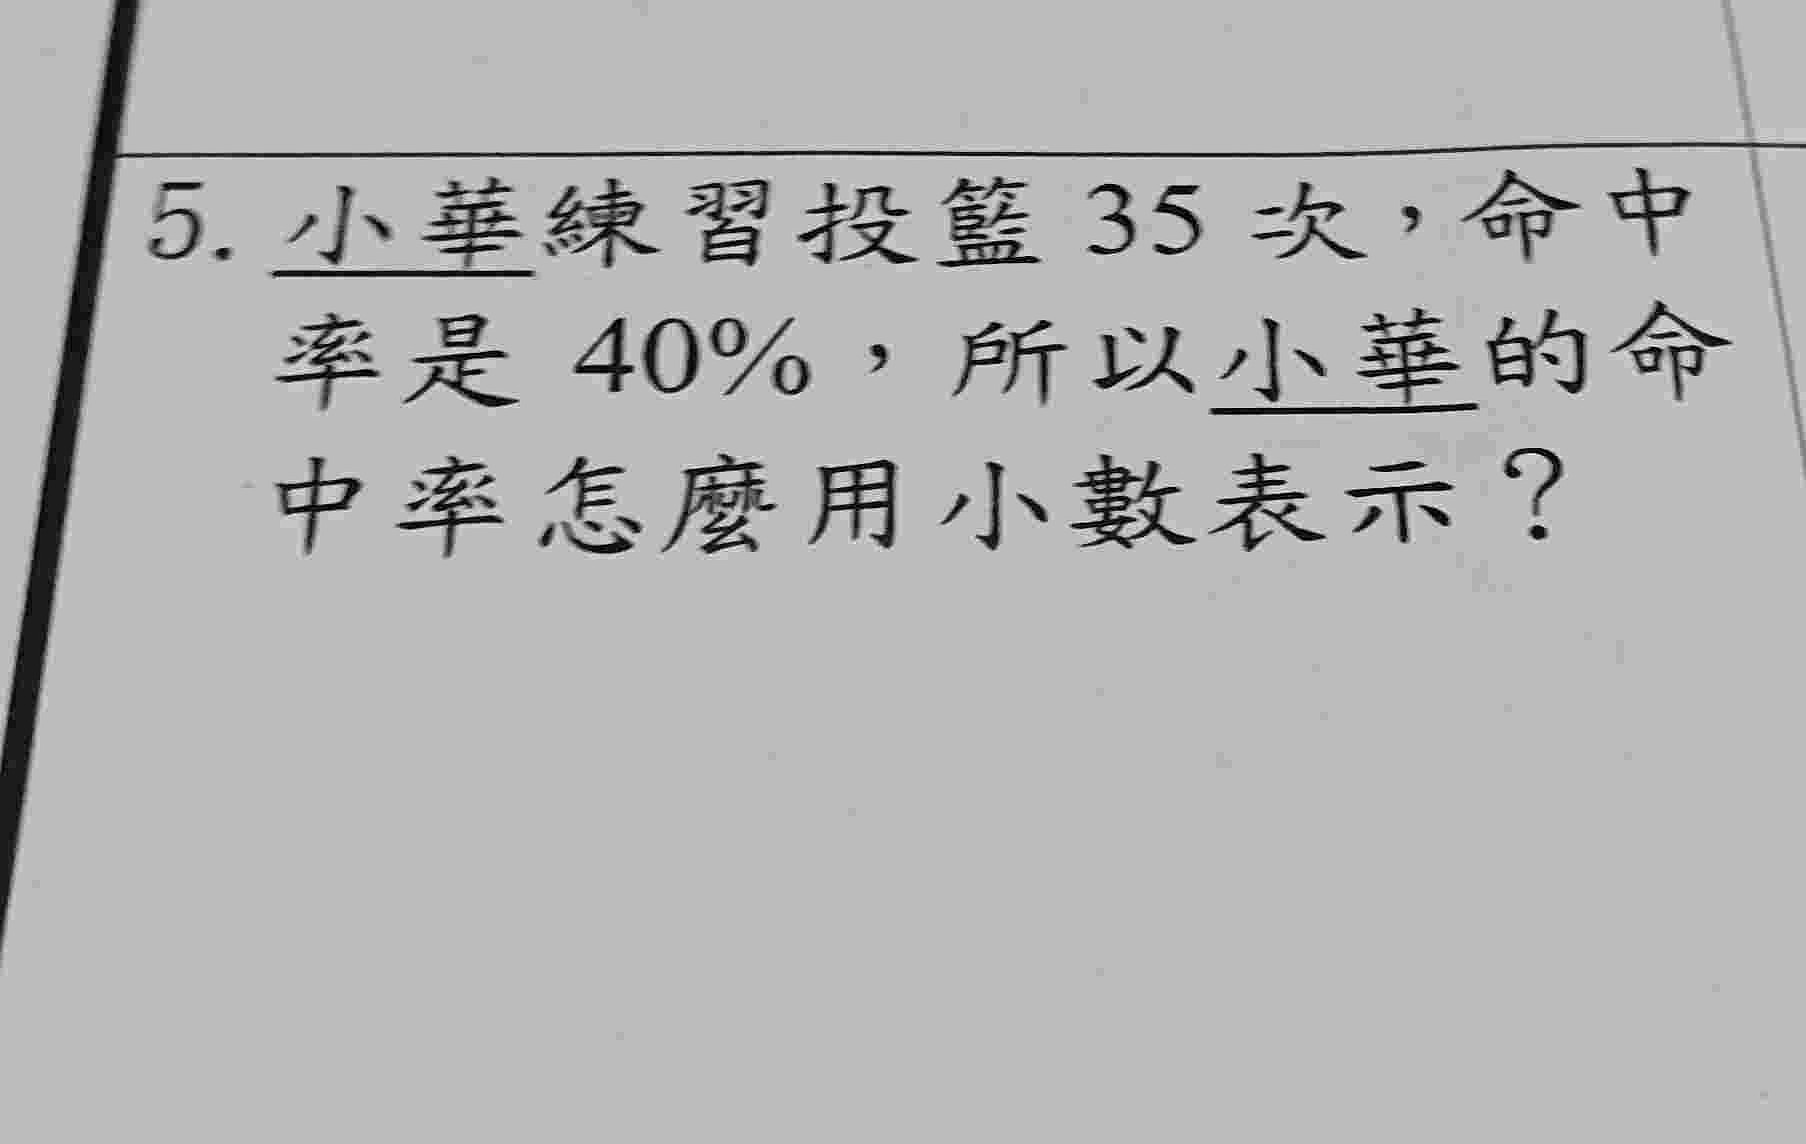 5. 小華練習投籃 35 次，命中
率是 40%，所以小華的命
中率怎麼用小數表示？